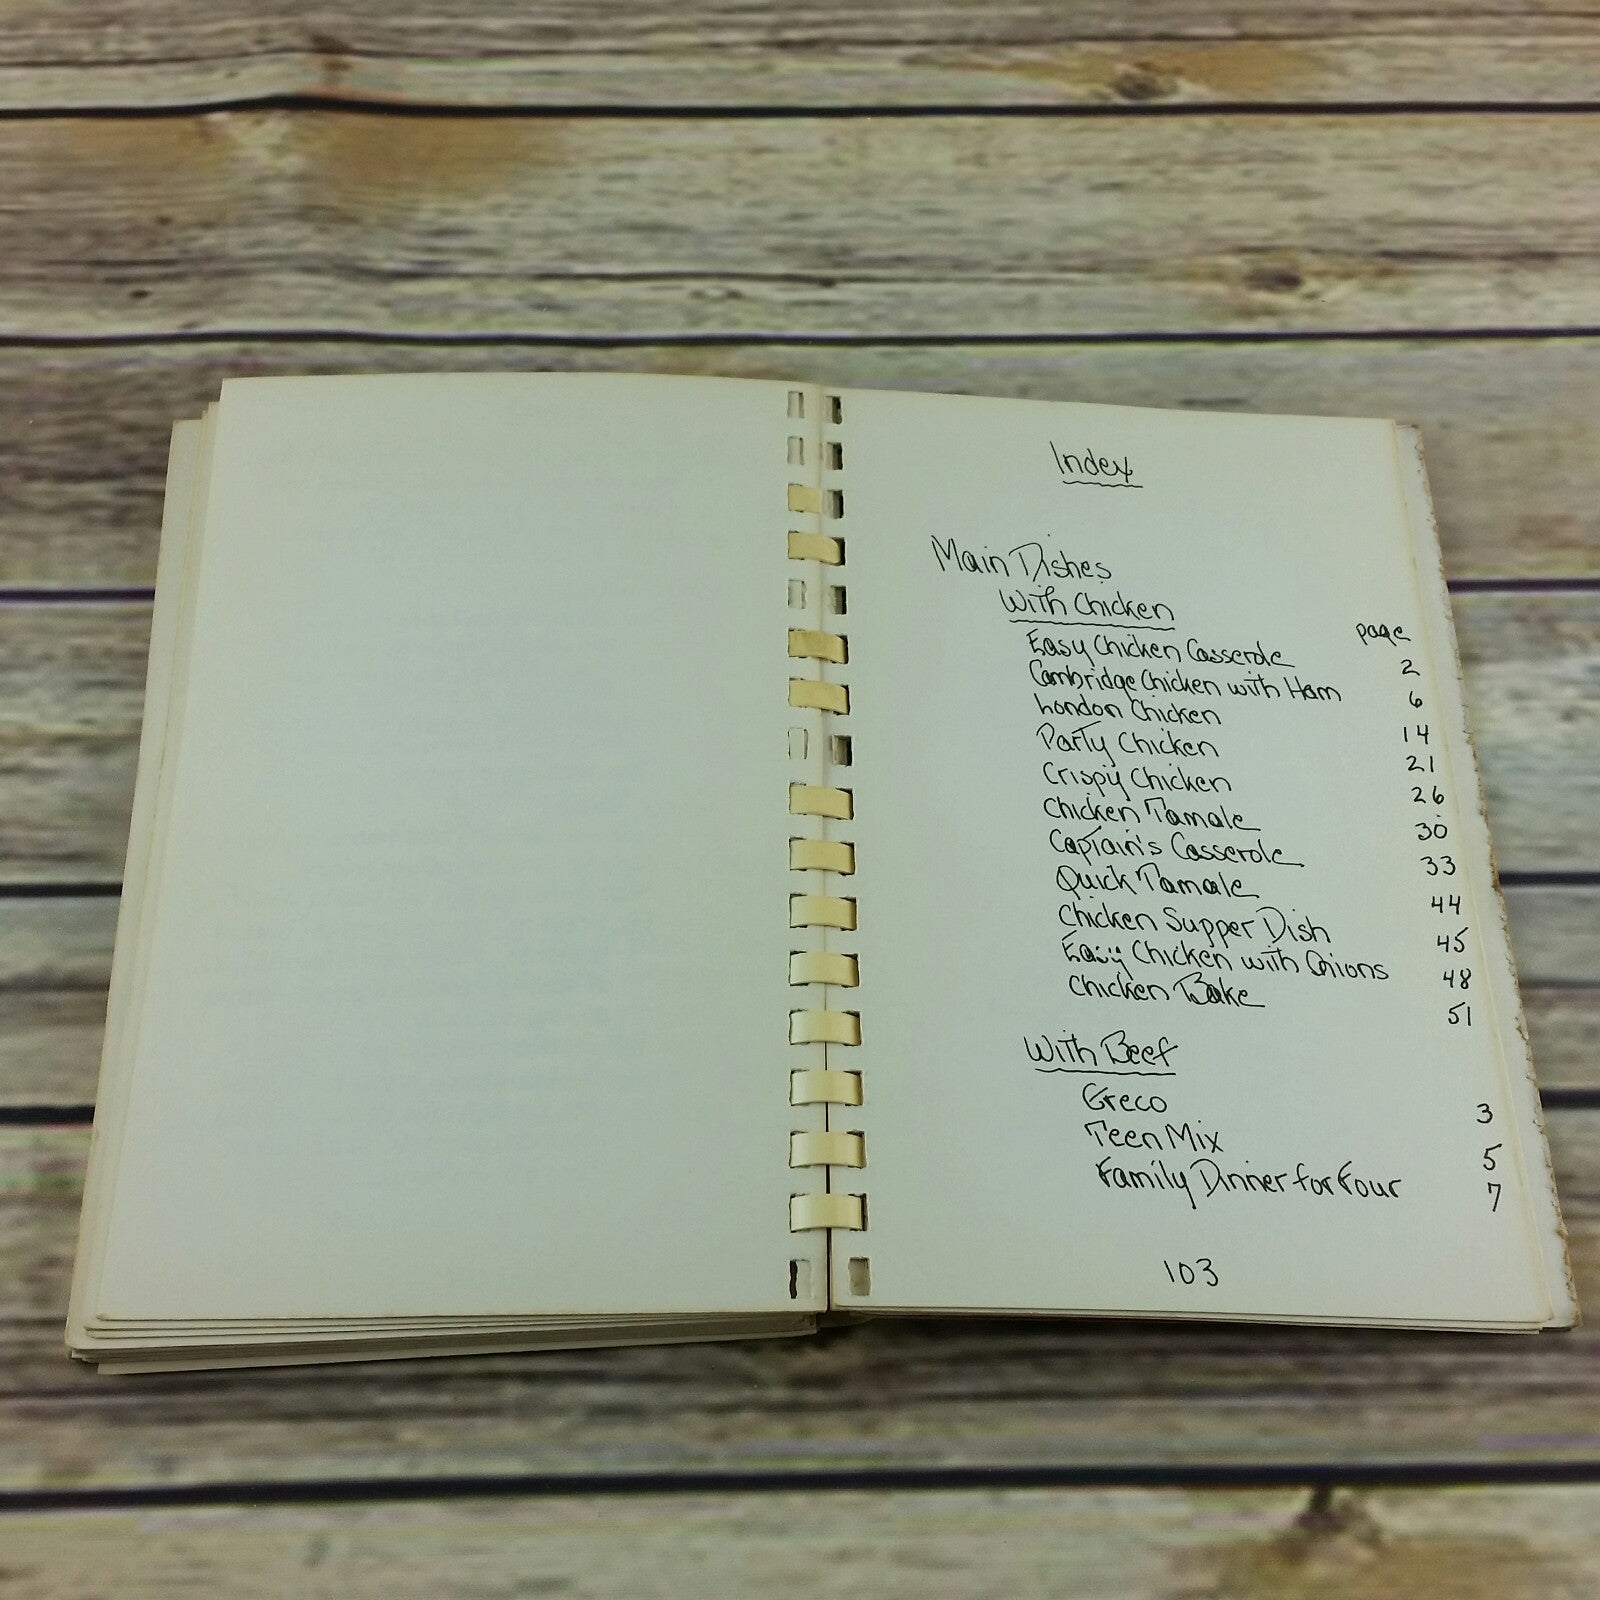 Index
Main Dishes
With Chicken
page
Easy Chicken Casserole 2
Cambridge Chicken with Ham 6
London Chicken 14
Party Chicken 21
Crispy Chicken 26
Chicken Tamale 30
Captain's Casserole 33
Quick Tamale 44
Chicken Supper Dish 45
Easy Chicken with Onions 48
Chicken Bake 51
With Beef
Greco 3
Teen Mix 5
Family Dinner for Four 7
103